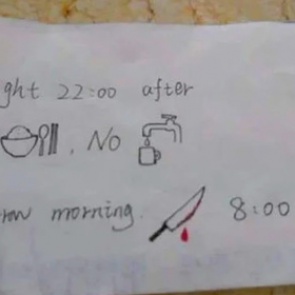 ght 22:00 after
, No
row morning. 8:00